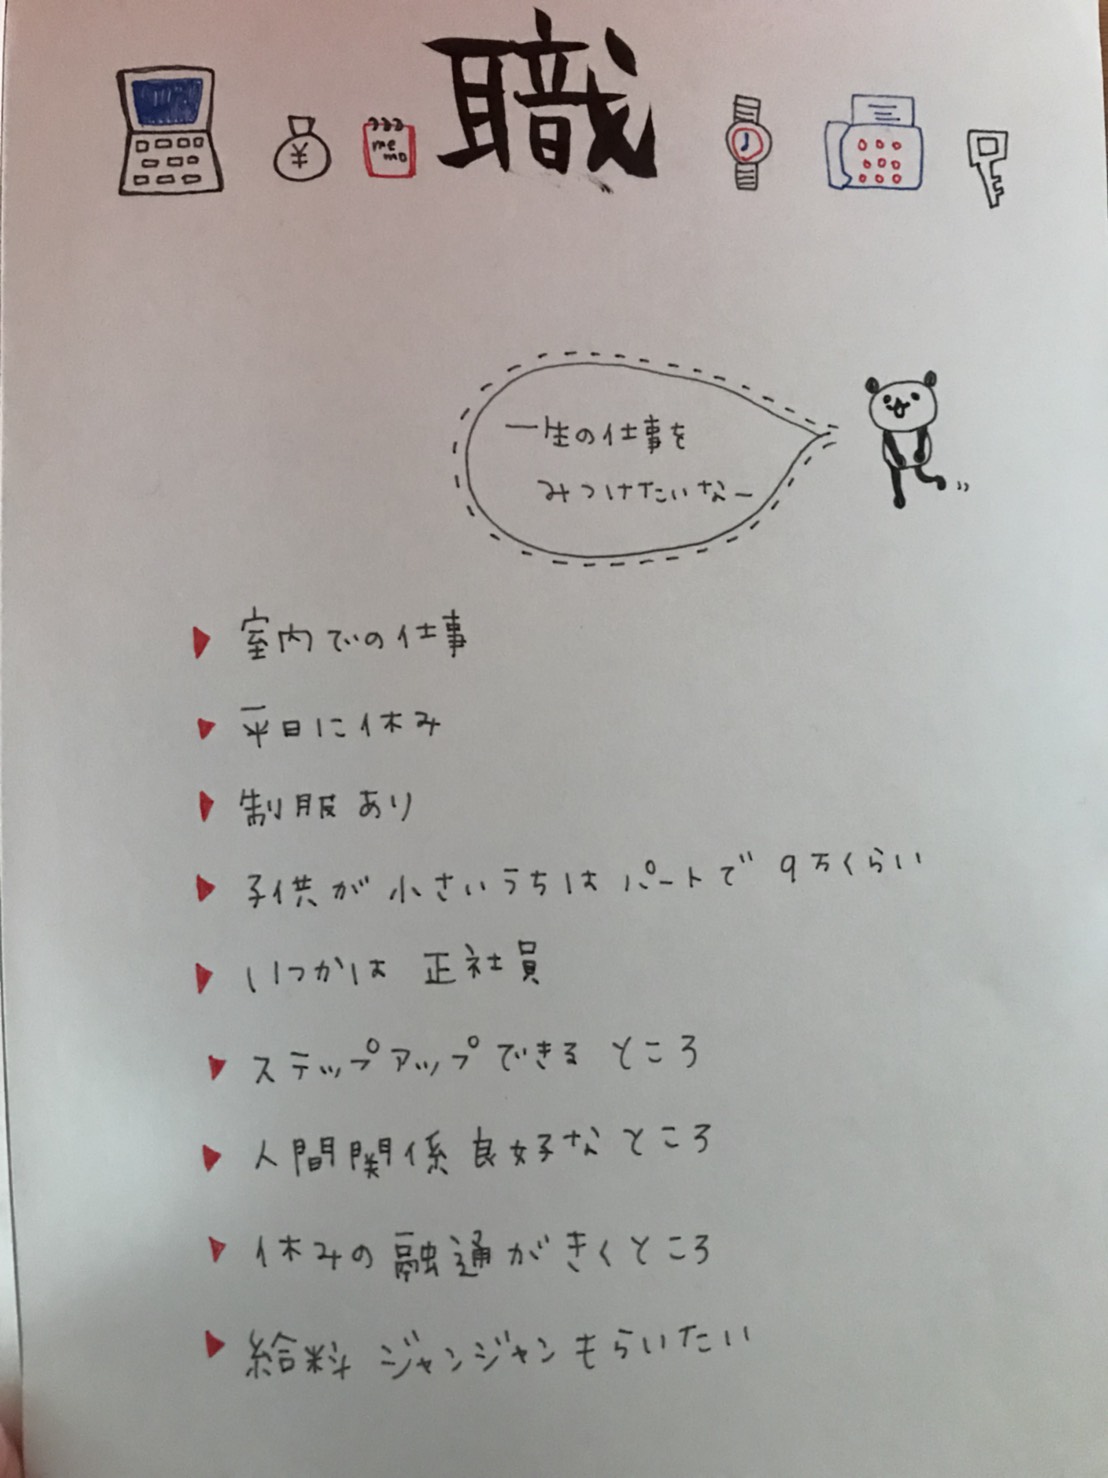 職
¥
memo
一生の仕事を
みつけたいなー
室内での仕事
平日に休み
制服あり
子供が小さいうちはパートで9万くらい
いつかは 正社員
ステップアップできるところ
人間関係良好なところ
休みの融通がきくところ
給料ジャンジャンもらいたい